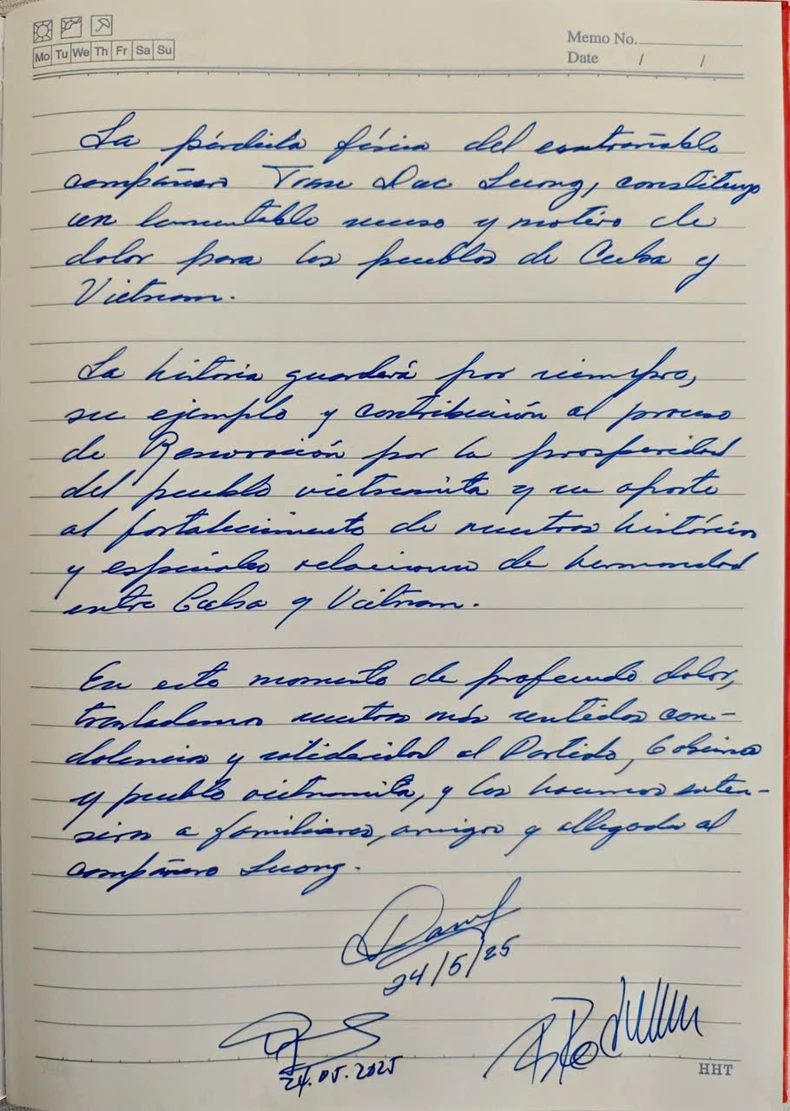 Mo Tu We Th Fr Sa Su
Memo No.
Date / /
La pérdida física del entrañable
compañero Tran Duc Luong, constituye
un lamentable suceso y motivo de
dolor para los pueblos de Cuba y
Vietnam.
La historia guardará por siempre,
su ejemplo y contribución al proceso
de Renovación por la prosperidad
del pueblo vietnamita y su aporte
al fortalecimiento de nuestras históricas
y especiales relaciones de hermandad
entre Cuba y Vietnam.
En este momento de profundo dolor,
trasladamos nuestras más sentidas con-
dolencias y solidaridad al Partido, Gobierno
y pueblo vietnamita, y las hacemos exten-
sivas a familiares, amigos y allegados al
compañero Luong.
24/5/25
24.05.2025
HHT